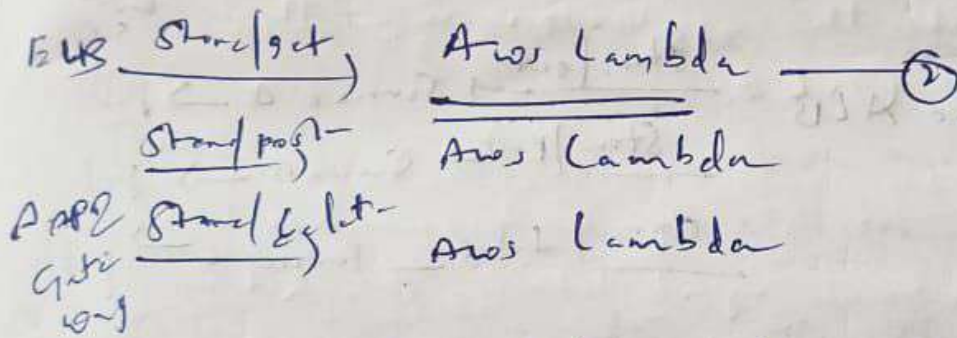 ELB Store/get Aws Lambda ②
Store/post Aws Lambda
API Aws Lambda
Gate
way